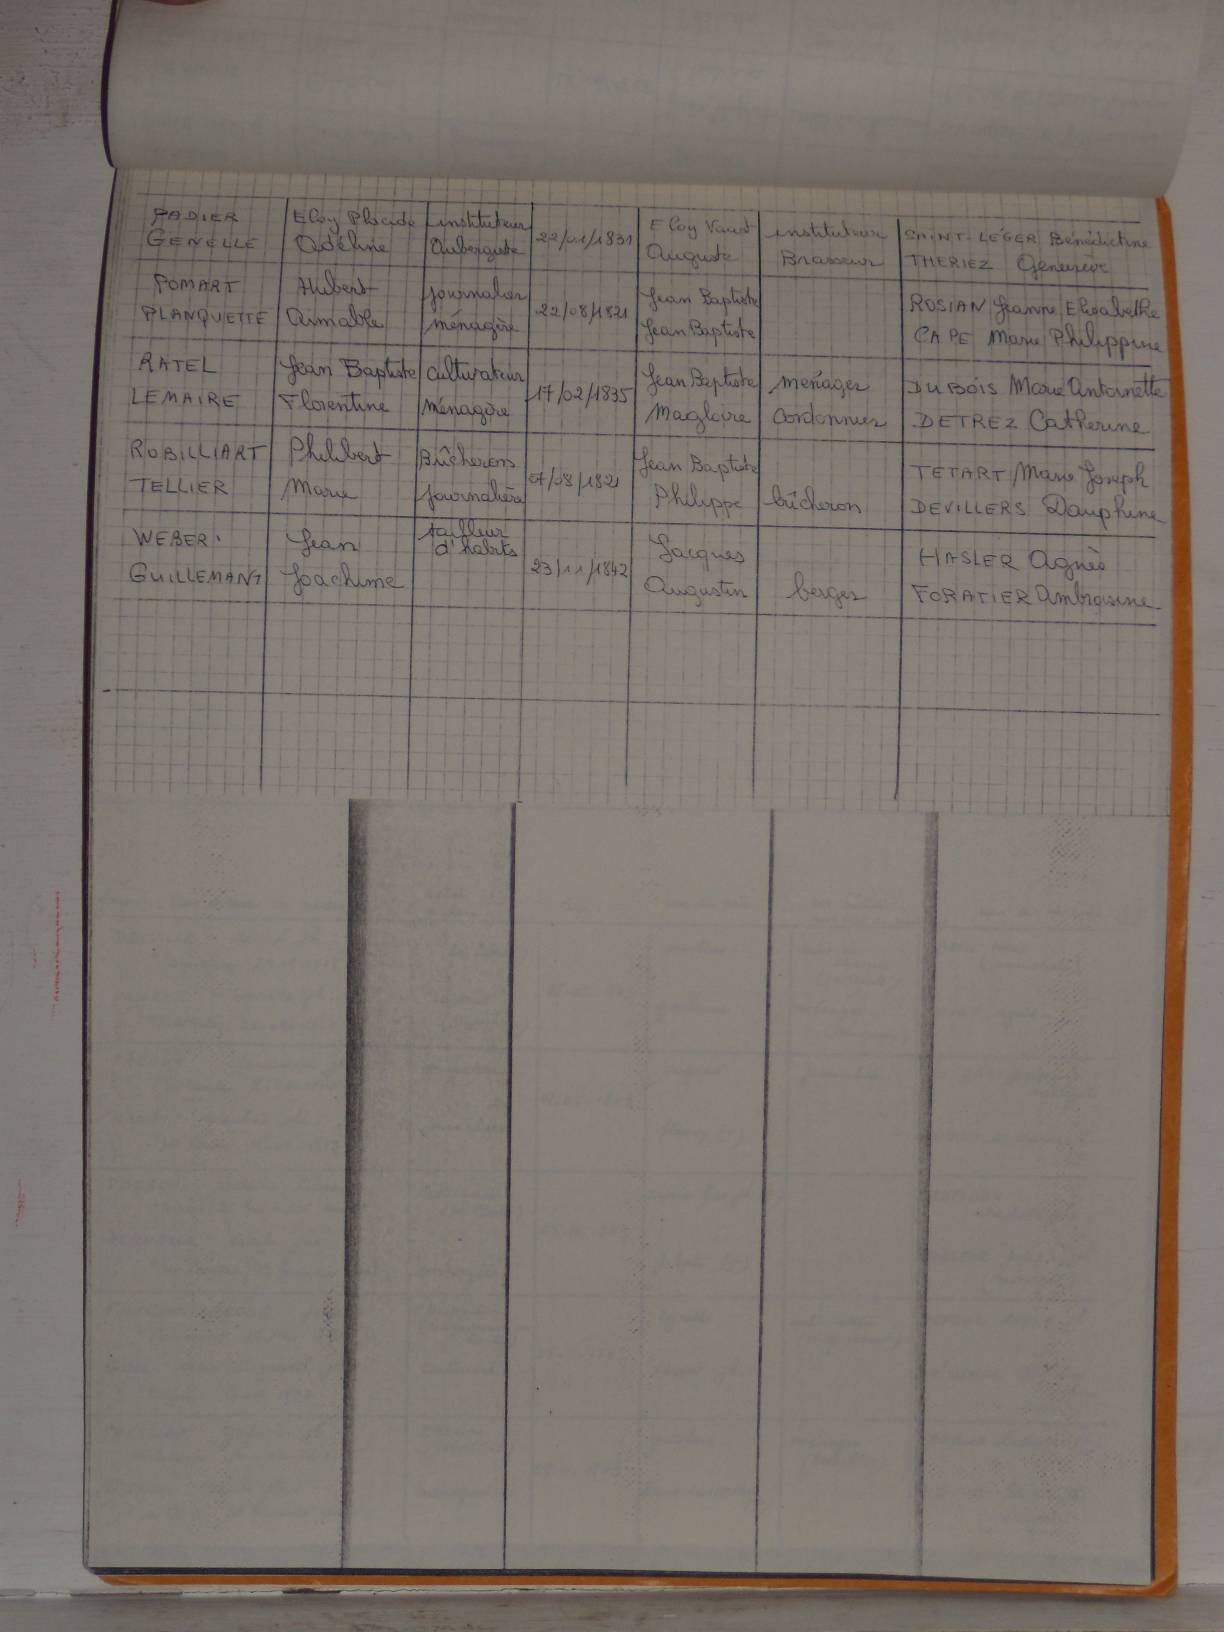 PADIER Eloy Placide instituteur 22/01/1831 Eloy Vaast instituteur SAINT-LÉGER Bénédictine
GENELLE Odéline Aubergiste Auguste Brasseur THERIEZ Geneviève
POMART Hubert journalier 22/08/1821 Jean Baptiste ROSIAN Jeanne Elisabethe
PLANQUETTE Aimable ménagère Jean Baptiste CAPE Marie Philippine
RATEL Jean Baptiste cultivateur 17/02/1835 Jean Baptiste ménager DUBOIS Marie Antoinette
LEMAIRE Florentine ménagère Magloire cordonnier DETREZ Catherine
ROBILLIART Philibert Bûcheron 07/08/1821 Jean Baptiste TETART Marie Joseph
TELLIER Marie journalière Philippe bûcheron DEVILLERS Dauphine
WEBER Jean tailleur d'habits 23/11/1842 Jacques HASLER Agnès
GUILLEMANT Joachime Augustin berger FORATIER Ambroisine